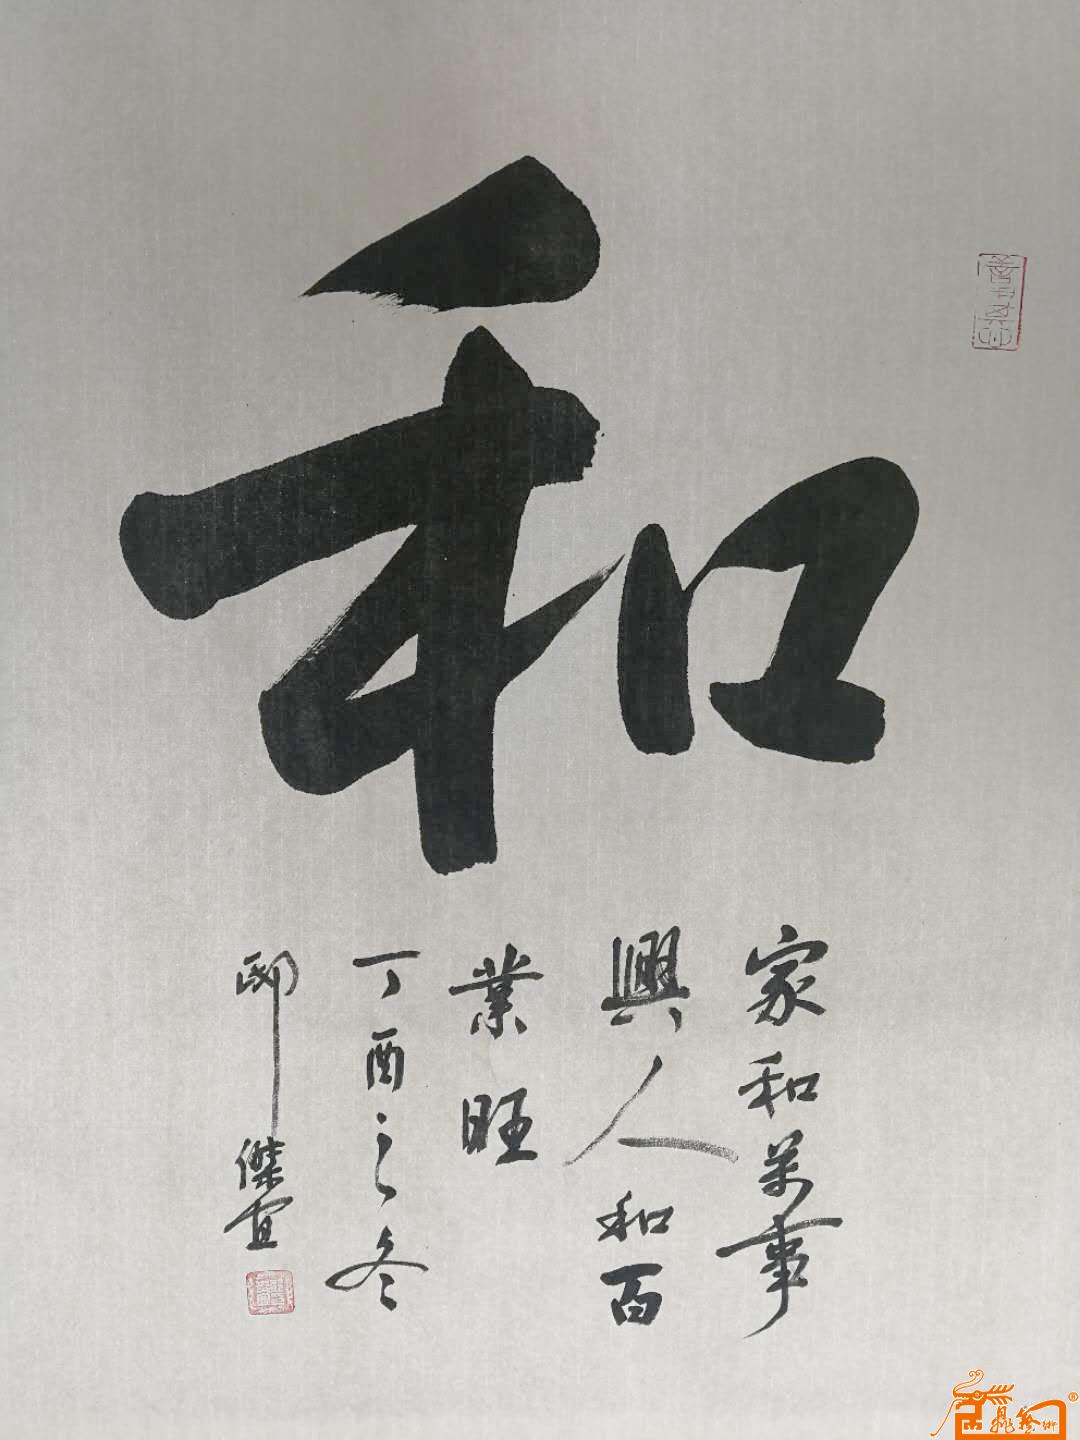 和
家和萬事
興人和百
業旺
丁酉之冬
邸傑宜